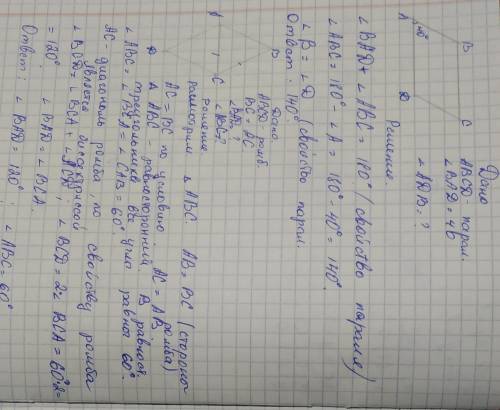 Дано
ABCD - парал.
∠BAD = 40
∠ADB = ?
A
B
C
D
40°
Решение.
∠BAD + ∠ABC = 180° (свойство паралл)
∠ABC = 180° - ∠A = 180° - 40° = 140°
∠B = ∠D (свойство парал.
Ответ: 140°
A
B
C
D
Дано
ABCD ромб
BC = AC
∠BAD ?
∠ABC?
Решение
рассмотрим △ ABC. AB = BC (стороны ромба)
AC = BC по условию AC = AB
△ ABC - равносторонний. В равност.
треугольнике все углы равны 60°.
∠ABC = ∠BCA = ∠CAB = 60°
AC - диагональ ромба по свойству ромба
является биссектрисой
∠BCD = ∠BCA + ∠ACD, ∠BCD = 2∠BCA = 60°·2 =
= 120° ∠BAD = ∠BCA.
Ответ: ∠BAD = 120°, ∠ABC = 60°